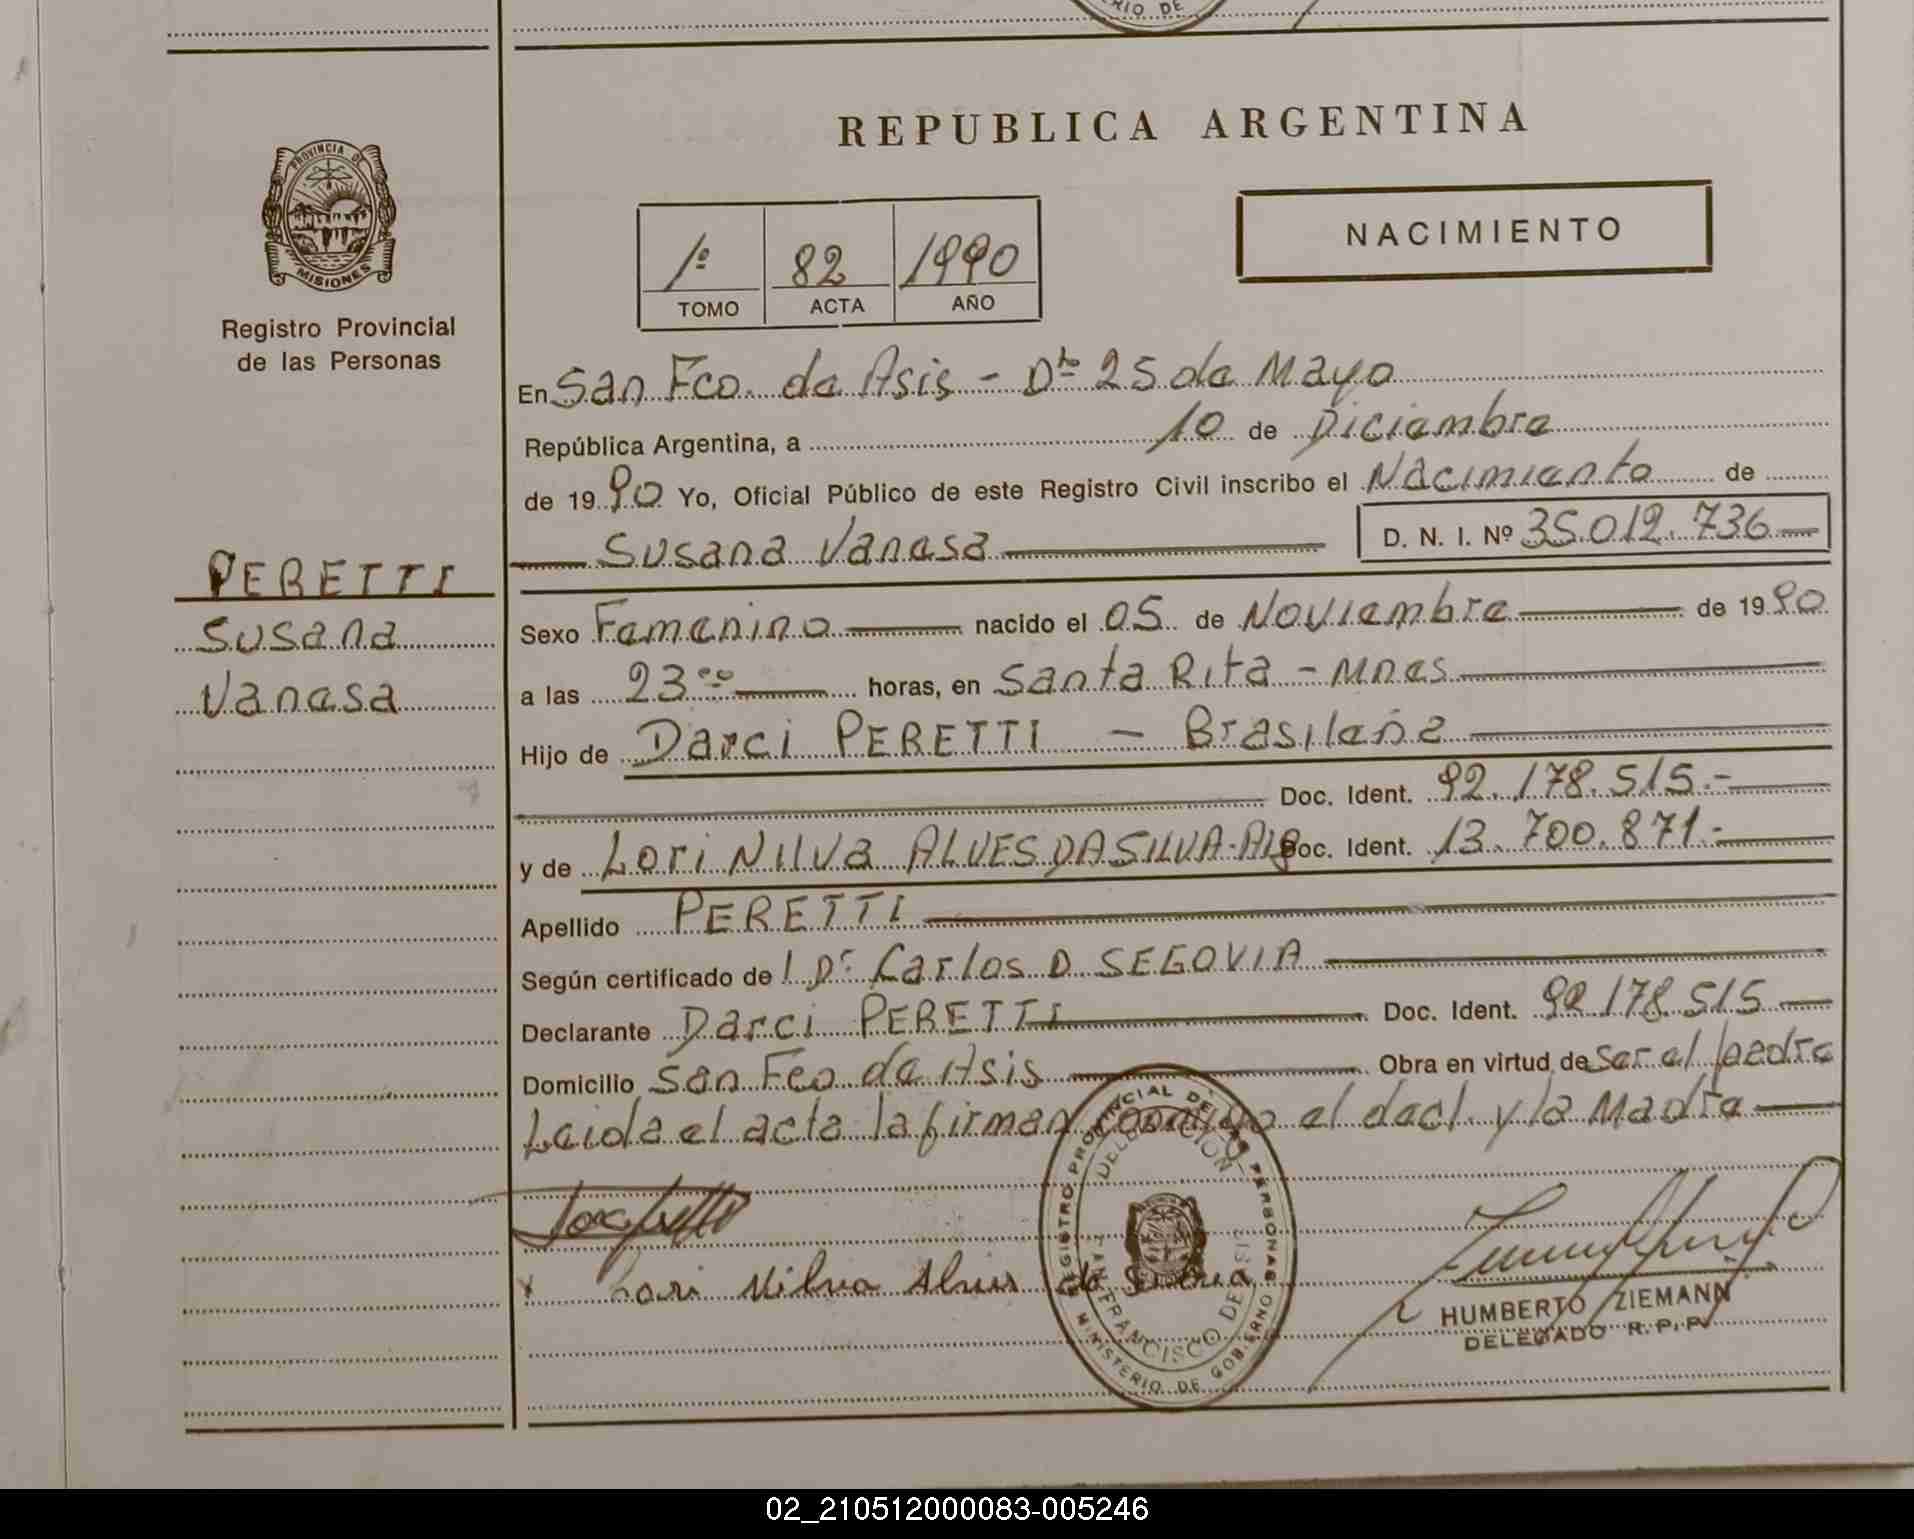 RIO DE
REPUBLICA ARGENTINA
PROVINCIA DE
MISIONES
Registro Provincial
de las Personas
1º 82 1990
TOMO ACTA AÑO
NACIMIENTO
En San Fco. de Asis - Dto 25 de Mayo
República Argentina, a 10 de Diciembre
de 1990 Yo, Oficial Público de este Registro Civil inscribo el Nacimiento de
Susana Vanesa D. N. I. Nº 35.012.736
PERETTI
Susana
Vanesa
Sexo Femenino nacido el 05 de Noviembre de 1990
a las 23ºº horas, en Santa Rita - Mnes
Hijo de Darci PERETTI - Brasileña
Doc. Ident. 92.178.515.-
y de Lori Nilva ALVES DA SILVA-Alg Doc. Ident. 13.700.871.-
Apellido PERETTI
Según certificado del Dr Carlos D SEGOVIA
Declarante Darci PERETTI Doc. Ident. 92.178.515
Domicilio San Fco de Asis Obra en virtud de ser el padre
Leida el acta la firman conmigo el decl. y la Madre
Lori Nilva Alves da Silva
REGISTRO PROVINCIAL DE LAS PERSONAS
DELEGACION
SAN FRANCISCO DE ASIS
MINISTERIO DE GOBIERNO
HUMBERTO ZIEMANN
DELEGADO R.P.P.
02_210512000083-005246